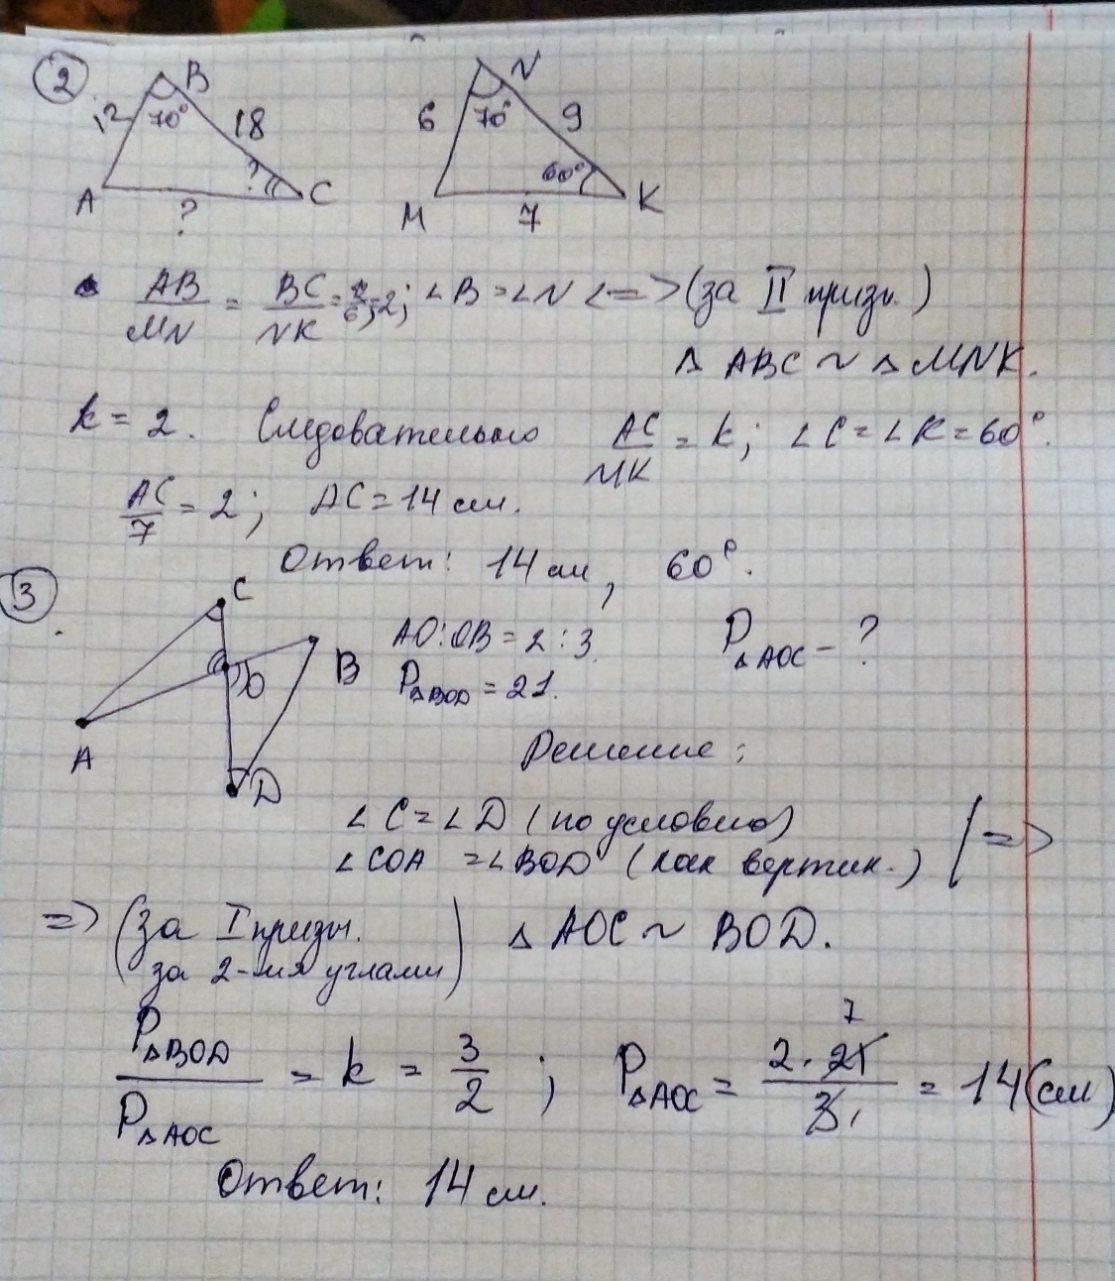 2
B
12
70°
18
?
A
?
C
N
6
70°
9
60°
M
7
K
AB/MN = BC/NK = 12/6 = 2; ∠B = ∠N <=> (за II призн.)
Δ ABC ~ Δ MNK.
k = 2. Следовательно AC/MK = k; ∠C = ∠K = 60°.
AC/7 = 2; AC = 14 см.
Ответ: 14 см, 60°.
3
C
O
B
A
D
AO:OB = 2:3
PΔBOD = 21.
PΔAOC - ?
Решение:
∠C = ∠D (по условию)
∠COA = ∠BOD (как вертик.) | =>
=> (за I призн. за 2-мя углами) Δ AOC ~ BOD.
PΔBOD/PΔAOC = k = 3/2; PΔAOC = 2·21/3 = 14 (см)
7
1
Ответ: 14 см.